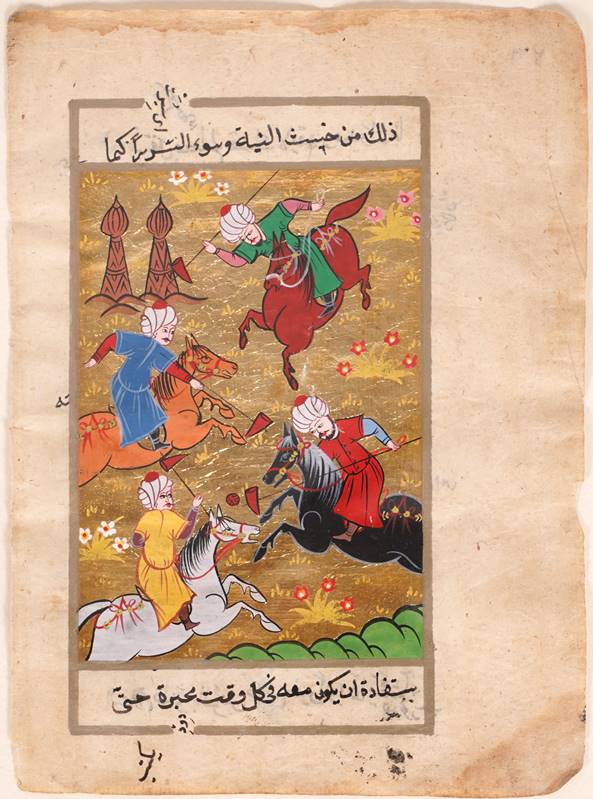 ذلك من خبيث النية وسوء كما
بستفادة ان يكون معه في كل وقت محبرة حتى